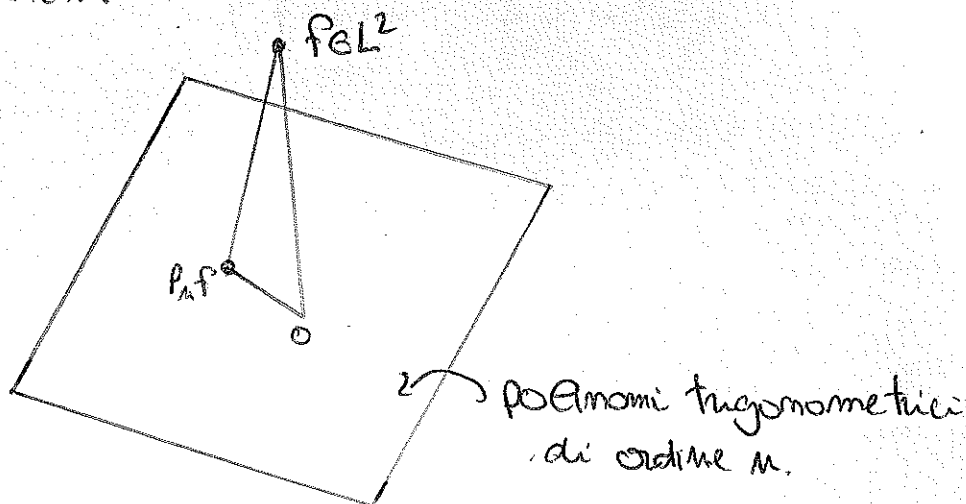 f∈L²
Pₙf
O
polinomi trigonometrici
di ordine n.